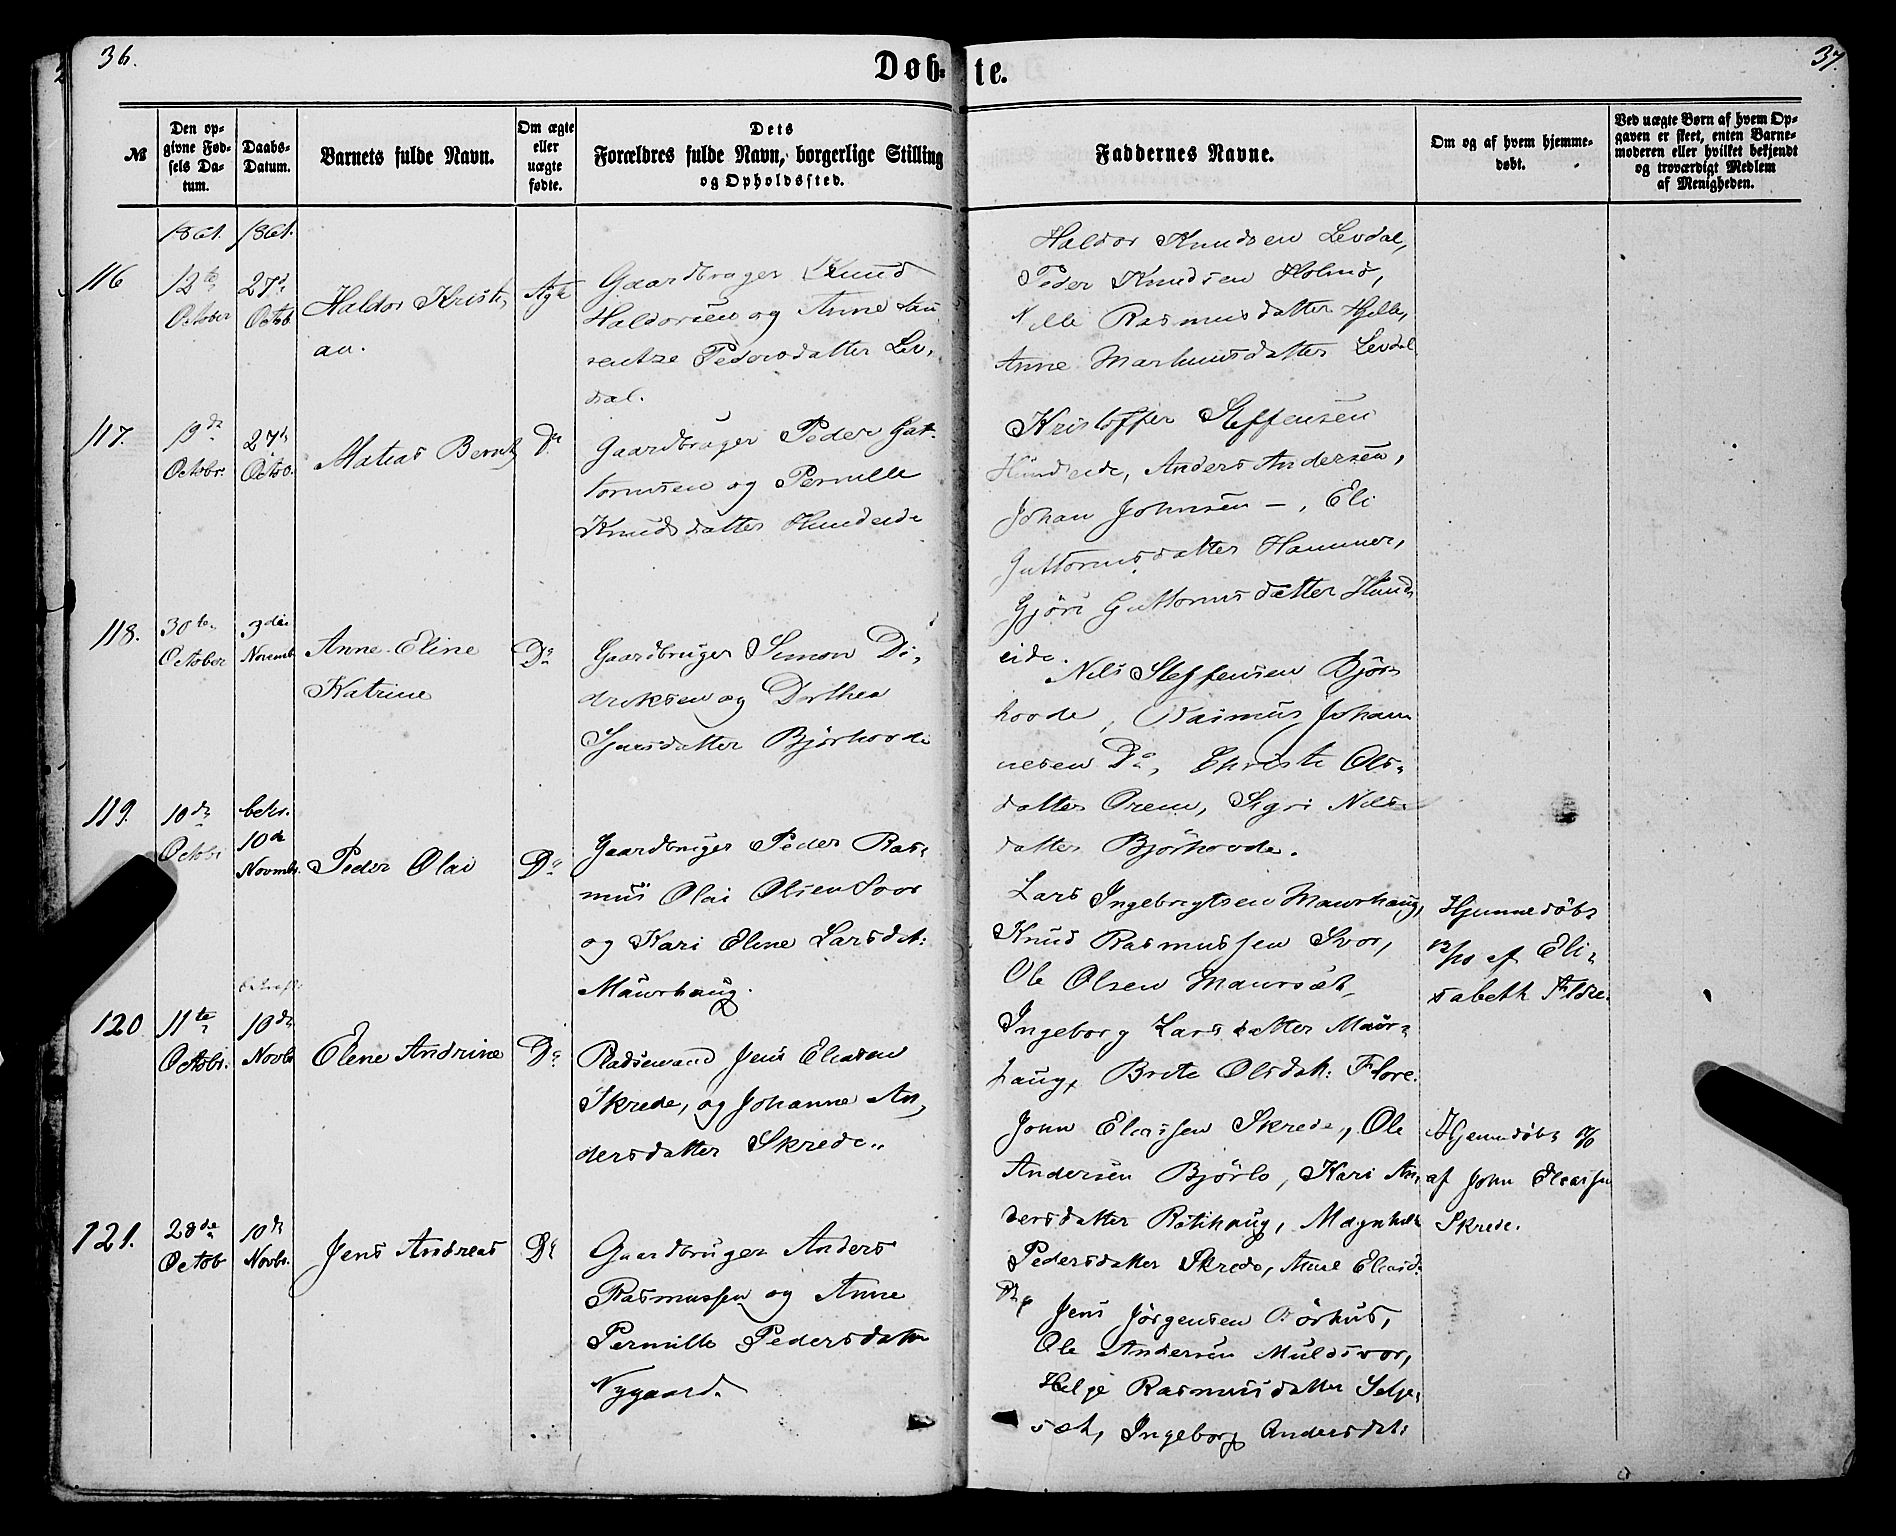 36.
37.
Døbte.
№
Den opgivne Fødsels Datum.
Daabs-Datum.
Barnets fulde Navn.
Om ægte eller uægte fødte.
Dets Forældres fulde Navn, borgerlige Stilling og Opholdssted.
Faddernes Navne.
Om og af hvem hjemmedøbt.
Ved uægte Børn af hvem Opgaven er skeet, enten Barnemoderen eller hvilket bekjendt og troværdigt Medlem af Menigheden.
1861. 1861.
116
October
27de
Octob
Haldor Kristi,
an.
Ægte
Gaardbruger Knud
Haldorsen og Anne Lau
rentze Pedersdatter Lev,
dal.
Haldor Knudsen Levdal,
Peder Knudsen Holms,
Rasmusdatter Hjelle,
Anne Markusdatter Levdal
117.
19de
Octobr.
27de
Octob.
Matias Bernt,
Do
Gaardbruger Peder Gut-
tormsen og Pernille
Knudsdatter Hundeide
Kristoffer Steffensen
Hundeide, Anders Andersen,
Johan Johnsen —, Eli
Guttormsdatter Hammer,
Gjøri Guttormsdatter Hund
eide.
118.
30te
October
3die
Novemb
Anne Eline
Katrine
Do
Gaardbruger Simon Di,
driksen og Dorthea
Bjørhovde
Nils Steffensen Bjør
hovde, Rasmus Johan
nesen Do, Christi Ols,
datter Orem, Sigri Nils
datter Bjørhovde.
119.
10de
Octobr
bekr.
10de
Novmbr.
Peder Olai
Do
Gaardbruger Peder Ras,
mus Olai Olsen Svor
og Kari Eline Larsdt:
Maurhaug.
Lars Ingebrigtsen Maurhaug,
Knud Rasmussen Svor,
Ole Olsen Maursæt,
Ingeborg Larsdatter Maur,
haug, Brite Olsdat: Flore.
Hjemmedøbt
af Eli,
sabeth Flore.
120
11te
Octobr.
10de
Novbr
Elene Andrine
Do
Pladsemand Jens Eliasen
Skrede, og Johanne An,
dersdatter Skrede.
John Eliassen Skrede, Ole
Andersen Bjørlo, Kari An,
dersdatter Rotihaug, Magnhild
Pedersdatter Skrede, Anne Eliasd.
Do
Hjemmedøbt
af John Eliassen
Skrede.
121.
28de
Octob
10de
Novbr.
Jens Andreas
Do
Gaardbruger Anders
Rasmussen og Anne
Pernille Pedersdatter
Nygaard.
Jens Jørgensen Børhus,
Ole Andersen Muldsvor,
Helge Rasmusdatter Selje,
sæt, Ingeborg Andersdt: